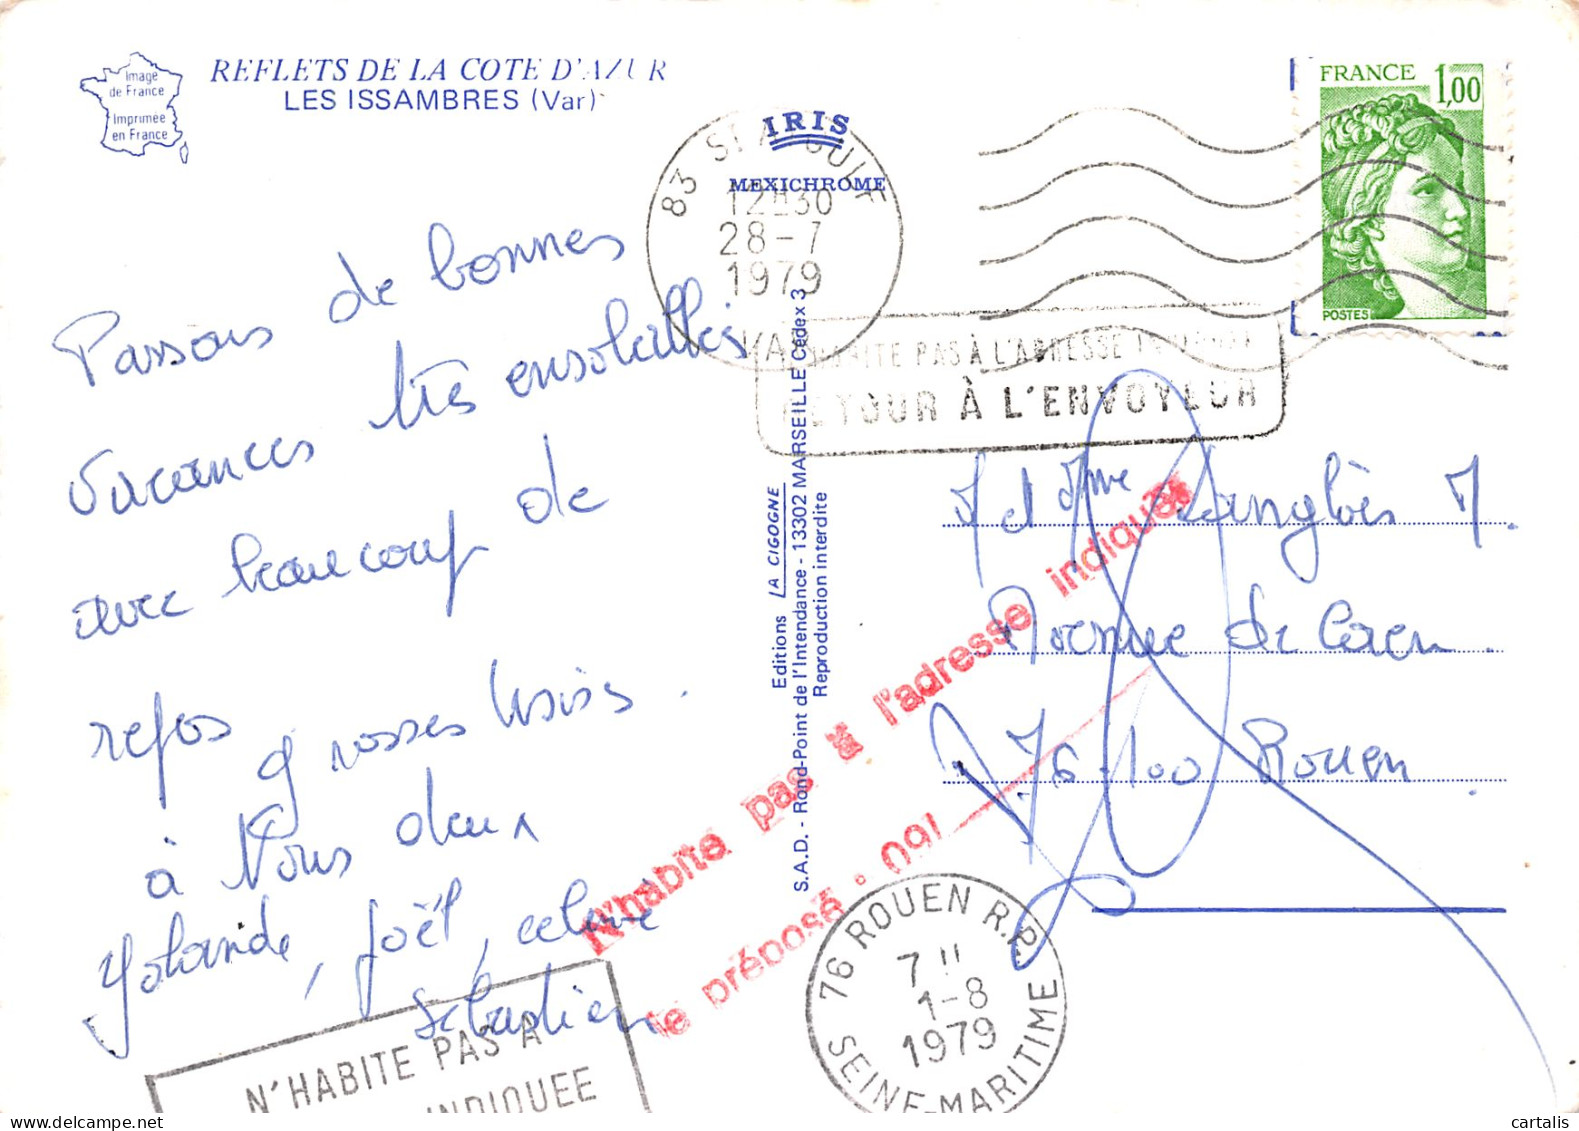 REFLETS DE LA COTE D'AZUR
LES ISSAMBRES (Var)
Image
de France
Imprimée
en France
IRIS
MEXICHROME
83 ST AYGULF
12H30
28-7
1979
VAR
FRANCE 1,00
POSTES
N'HABITE PAS À L'ADRESSE INDIQUÉE
RETOUR À L'ENVOYEUR
Passons de bonnes
vacances très ensoleillées
avec beaucoup de
repos
grosses bises.
à Vous deux
Yolande, Joël,
Sébastien
Editions LA CIGOGNE
S.A.D. - Rond-Point de l'Intendance - 13302 MARSEILLE Cédex 3
Reproduction interdite
et Mme Langlois
de Caen
76100 Rouen
N'habite pas à l'adresse indiquée
le préposé : 091
76 ROUEN R.P.
7H
1-8
1979
SEINE-MARITIME
N'HABITE PAS À
INDIQUEE
cartalis.com